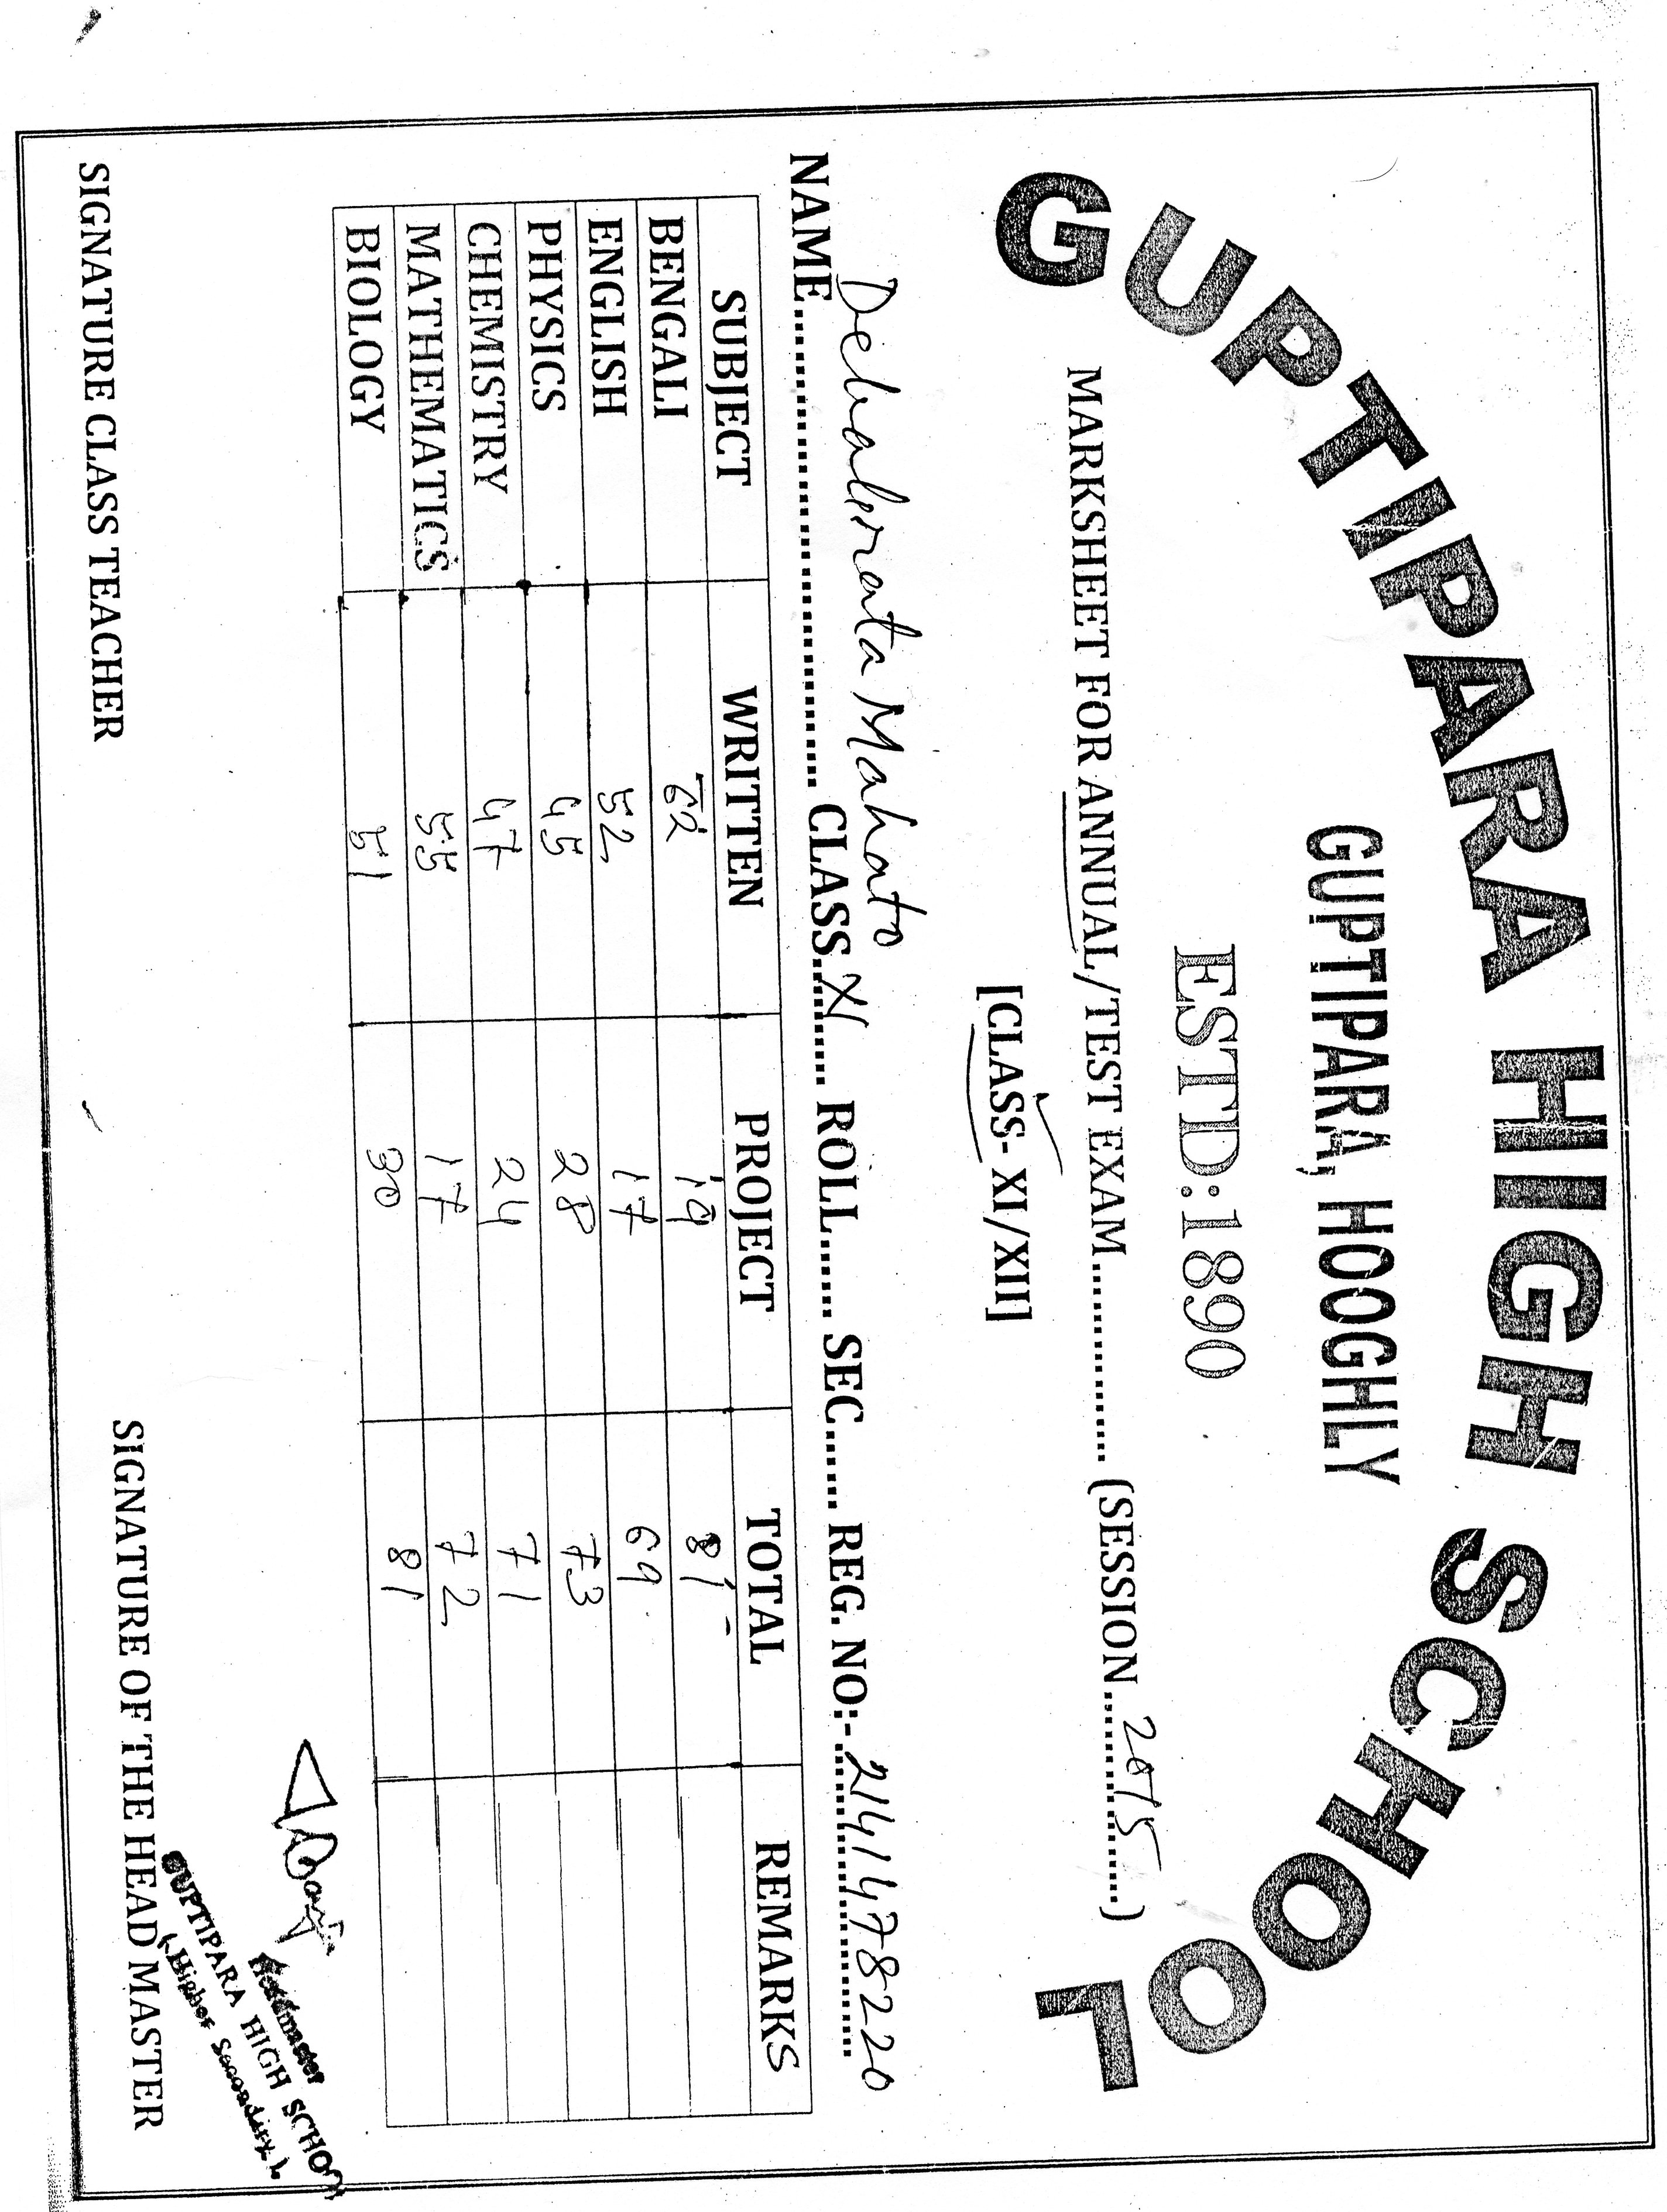 GUPTIPARA HIGH SCHOOL
GUPTIPARA, HOOGHLY
ESTD:1890
MARKSHEET FOR ANNUAL/TEST EXAM.................. (SESSION....2015.......)
[CLASS- XI/XII]
NAME Debabrata Mahato CLASS XI ROLL...... SEC...... REG. NO:- 2141478220
SUBJECT WRITTEN PROJECT TOTAL REMARKS
BENGALI 62 19 81
ENGLISH 52 17 69
PHYSICS 45 28 73
CHEMISTRY 47 24 71
MATHEMATICS 55 17 72
BIOLOGY 51 30 81
Headmaster
GUPTIPARA HIGH SCHOOL
(Higher Secondary)
SIGNATURE CLASS TEACHER SIGNATURE OF THE HEAD MASTER